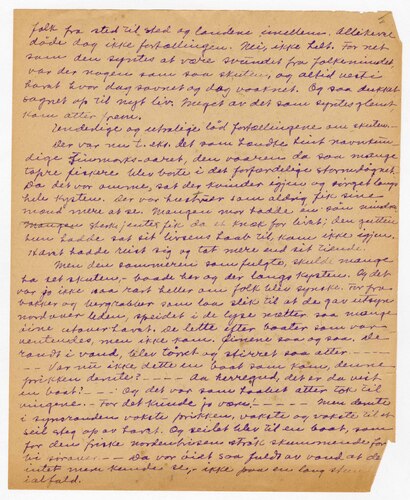 folk fra sted til sted og landene imellem. Allikevel
døde dog ikke fortællingen. Nei, ikke helt. For net
som den syntes at være svundet fra folkemindet,
var der nogen som saa skuten, og altid vest i
havet hvor dag sovnet og dag vaaknet. Og saa dukket
sagnet op til nyt liv. Meget av det som syntes glemt
kom atter frem.
Underlige og utrolige lød fortællingene om skuten.
Der var nu t. eks. det som hændte hint navnkun-
dige Finmarks-aaret, den vaaren da saa mange
tapre fiskere blev borte i det forfærdelige stormdøgnet.
Da det var omme, sat der kvinder igjen og sørget langs
hele kysten. Der var hustruer som aldrig fik sine
mænd mere at se. Mangen mor hadde en søn mindre
sterk jenter fik da et knæk for livet; den gutten
hun hadde sat sit livsens haab til, kom ikke igjen.
Havet hadde reist sig og tat mere end sit tidende.
Men den sommeren som fulgte, skulde mange
ha set skuten, baade her og der langs kysten. Og det
var jo ikke saa rart heller om folk blev synske. For fra
bakker og bergnabber som laa slik til at de gav utsyn
nordover leden, speidet i de lyse nætter saa mange
øine utover havet. De lette efter baater som var
ventendes, men ikke kom. Øinene saa og saa, de
randt i vand, blev tørret og stirret saa atter
Var nu ikke dette en baat som kom, denne
prikken derute? Aa herregud, det er da vist
en baat? Og det var som haabet atter tok til
vingene. For det kunde jo være Men derute
i synsranden vokste prikken, vokste og vokste til et
seil steg op av havet. Og seilet blev til en baat, som
for den friske nordenbrisen strøk skummende for-
bi Da var øiet saa fuldt av vand at de
intet mere kunde se, ikke paa en lang stund
ialfald.